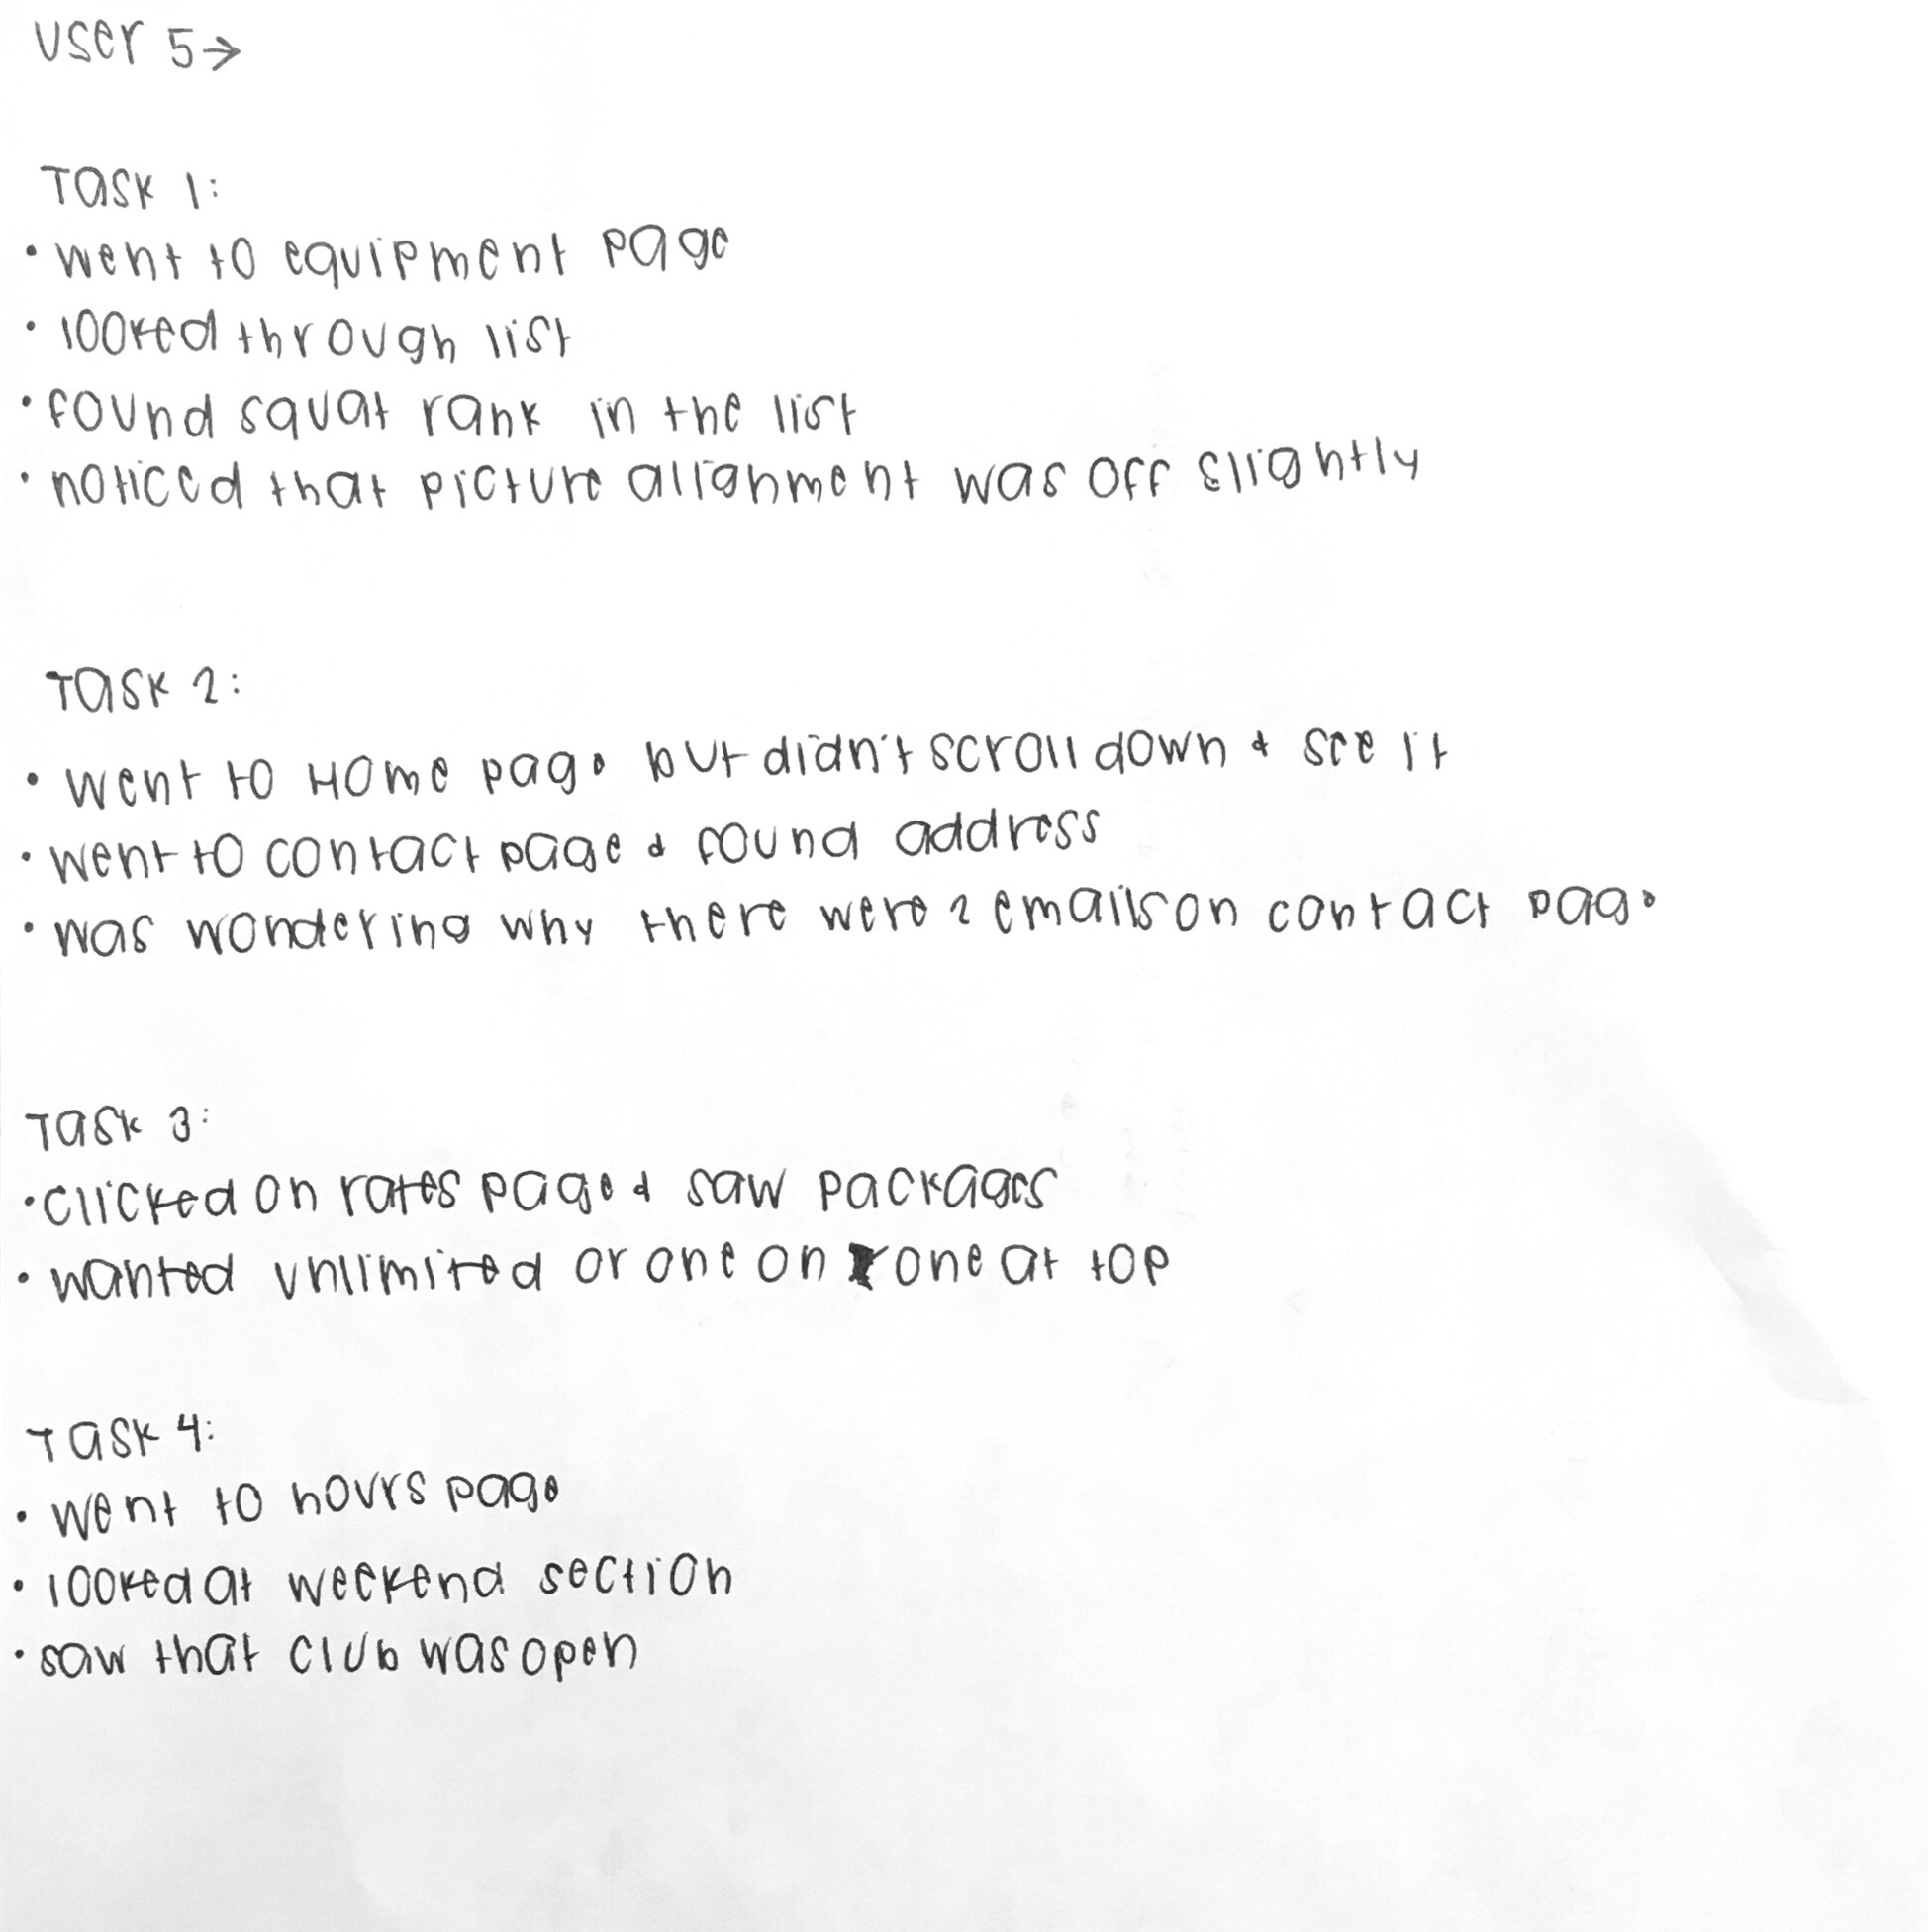 User 5→
Task 1:
• went to equipment page
• looked through list
• found squat rank in the list
• noticed that picture allignment was off slightly
Task 2:
• went to Home page but didn't scroll down & see it
• went to contact page & found address
• was wondering why there were 2 emails on contact page
Task 3:
• clicked on rates page & saw packages
• wanted unlimited or one on one at top
Task 4:
• went to hours page
• looked at weekend section
• saw that club was open